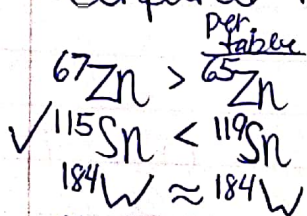 per
table
⁶⁷Zn > ⁶⁵Zn
✓ ¹¹⁵Sn < ¹¹⁹Sn
¹⁸⁴W ≈ ¹⁸⁴W